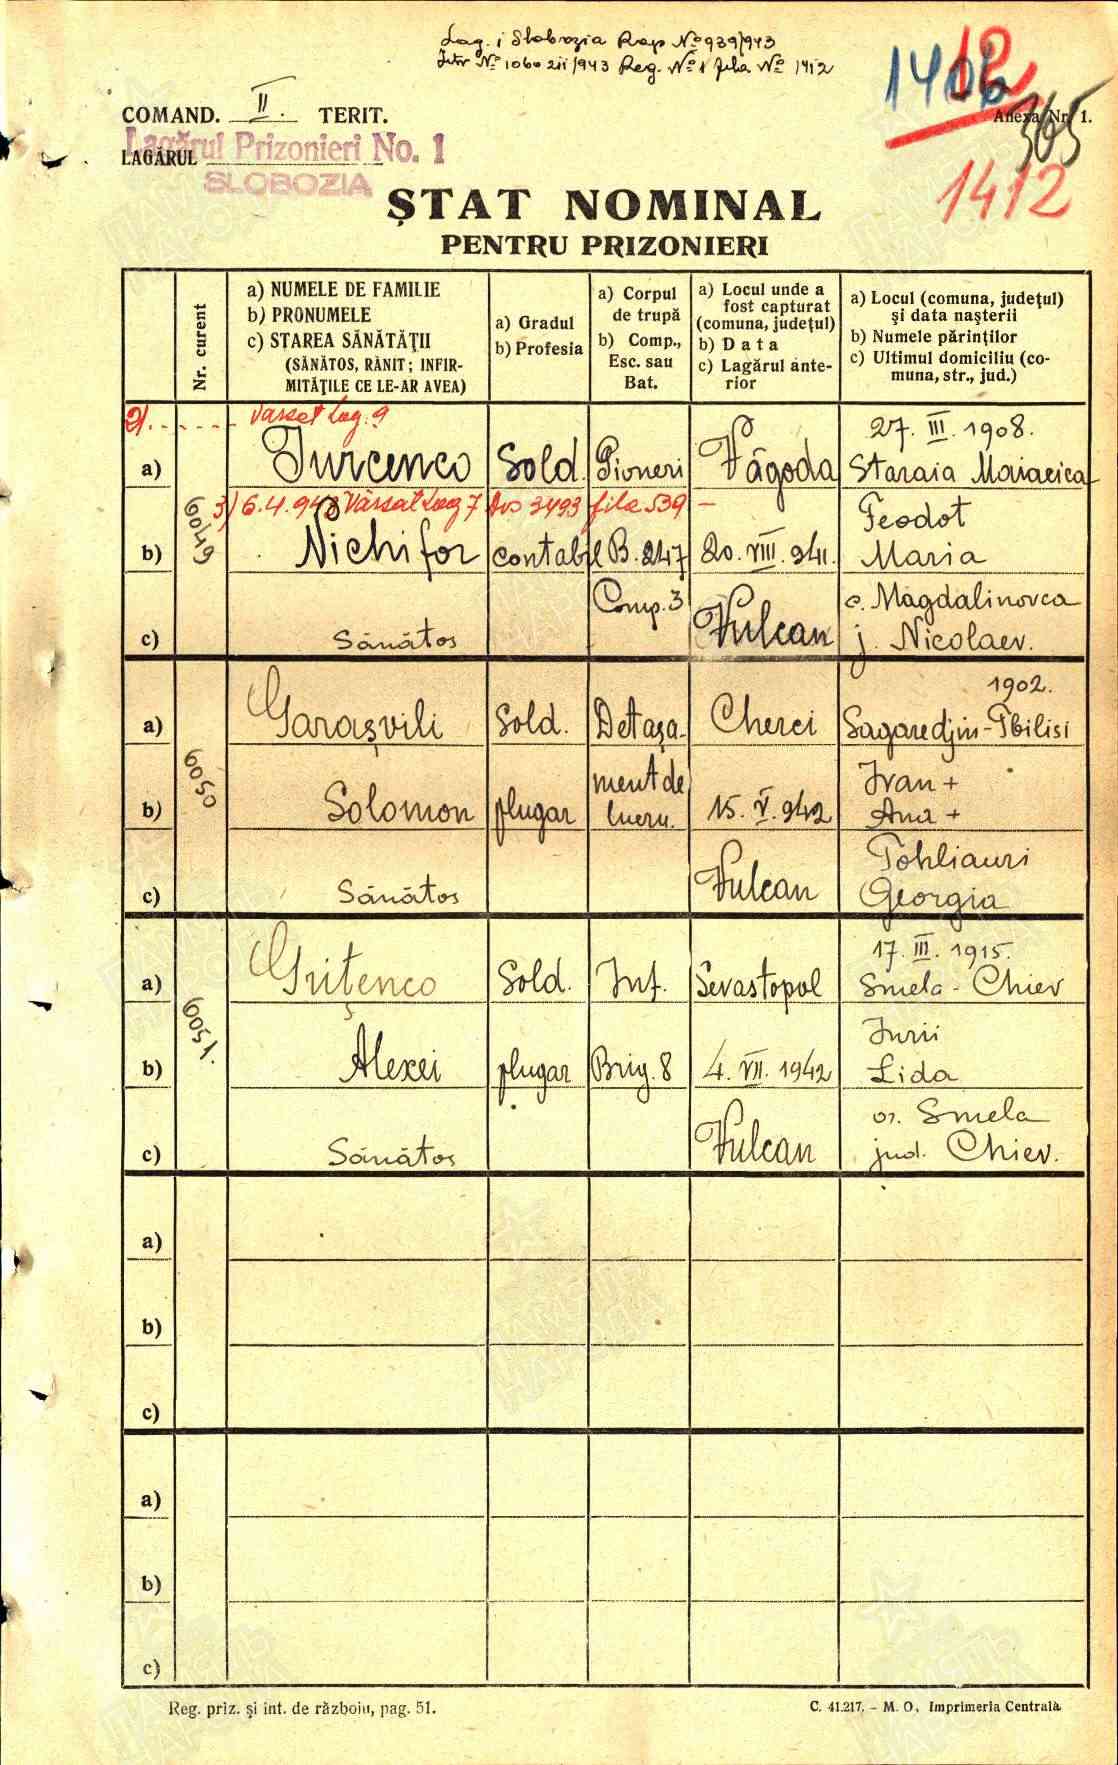 Lag. 1 Slobozia Rap No 939/943
Intr No 1060 211/943 Reg. No 1 fila No 1412
1412
365
1412
COMAND. II. TERIT.
Anexa Nr. 1.
LAGĂRUL
Lagărul Prizonieri No. 1
SLOBOZIA
ȘTAT NOMINAL
PENTRU PRIZONIERI
Nr. curent
a) NUMELE DE FAMILIE
b) PRONUMELE
c) STAREA SĂNĂTĂŢII
(SĂNĂTOS, RĂNIT; INFIR-
MITĂŢILE CE LE-AR AVEA)
a) Gradul
b) Profesia
a) Corpul
de trupă
b) Comp.,
Esc. sau
Bat.
a) Locul unde a
fost capturat
(comuna, județul)
b) Data
c) Lagărul ante-
rior
a) Locul (comuna, județul)
și data nașterii
b) Numele părinților
c) Ultimul domiciliu (co-
muna, str., jud.)
2)...... Varsat Lag. 9
27. III. 1908.
a) Turcenco Sold. Pioneri Văgoda Staraia Maiacica
6049
3) 6.4.943 Vărsat Lag 7 Avs 3493 fila 539 -
Feodot
b) Nichifor contabil B. 247 20. VIII. 941. Maria
Comp. 3 c. Magdalinovca
c) Sănătos Vulcan j. Nicolaev.
1902.
a) Garașvili Sold. Detașa- Cherci Sagaredjin-Tbilisi
6050
ment de Ivan +
b) Solomon plugar lucru. 15. V. 942 Ana +
Tohliauri
c) Sănătos Vulcan Georgia
17. III. 1915.
a) Grițenco Sold. Inf. Sevastopol Smela - Chiev
6051.
Iurii
b) Alexei plugar Brig. 8 4. VII. 1942 Lida
or. Smela
c) Sănătos Vulcan jud. Chiev.
a)
b)
c)
a)
b)
c)
Reg. priz. și int. de războiu, pag. 51.
C. 41.217. - M. O., Imprimeria Centrală